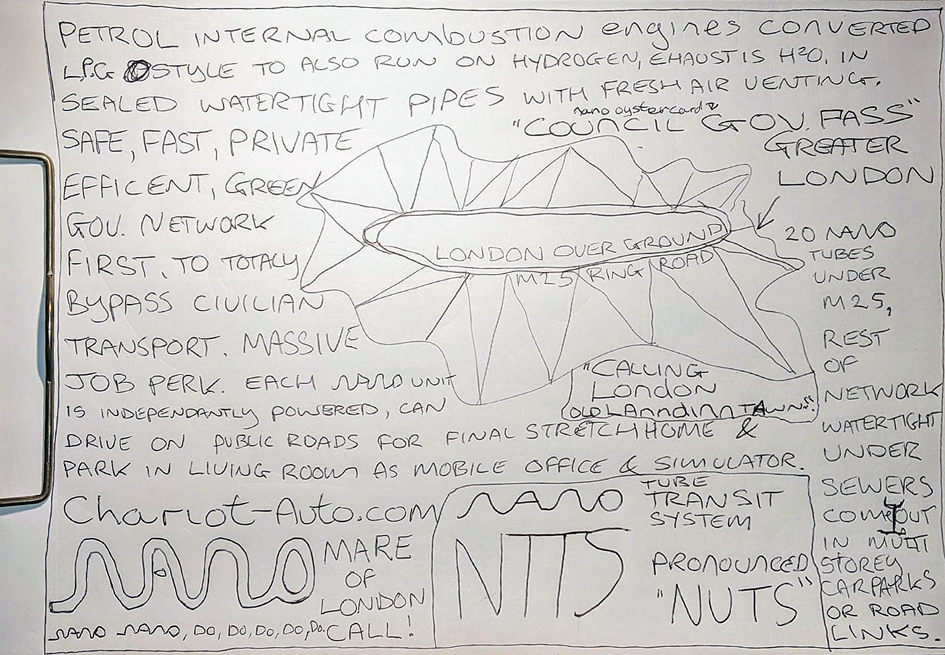 PETROL INTERNAL COMBUSTION engines CONVERTED
L.P.G STYLE TO ALSO RUN ON HYDROGEN, EXHAUST IS H²O. IN
SEALED WATERTIGHT PIPES WITH FRESH AIR VENTING.
SAFE, FAST, PRIVATE
EFFICENT, GREEN
GOV. NETWORK
FIRST, TO TOTALY
BYPASS CIVILIAN
TRANSPORT. MASSIVE
JOB PERK. EACH NANO UNIT
IS INDEPENDANTLY POWERED, CAN
DRIVE ON PUBLIC ROADS FOR FINAL STRETCH HOME &
PARK IN LIVING ROOM AS MOBILE OFFICE & SIMULATOR.
nano oystercard?
"COUNCIL GOV. PASS"
GREATER
LONDON
LONDON OVER GROUND
M25 RING ROAD
"CALLING
LONDON
TAWNS"
20 NANO
TUBES
UNDER
M25,
REST
OF
NETWORK
WATERTIGHT
UNDER
SEWERS
COMEOUT
IN MULTI
STOREY
CARPARKS
OR ROAD
LINKS.
Chariot-Auto.com
NANO
MARE
OF
LONDON
NANO NANO, DO, DO, DO, DO, DO. CALL!
NANO TUBE
TRANSIT
SYSTEM
NTTS
PRONOUNCED
"NUTS"